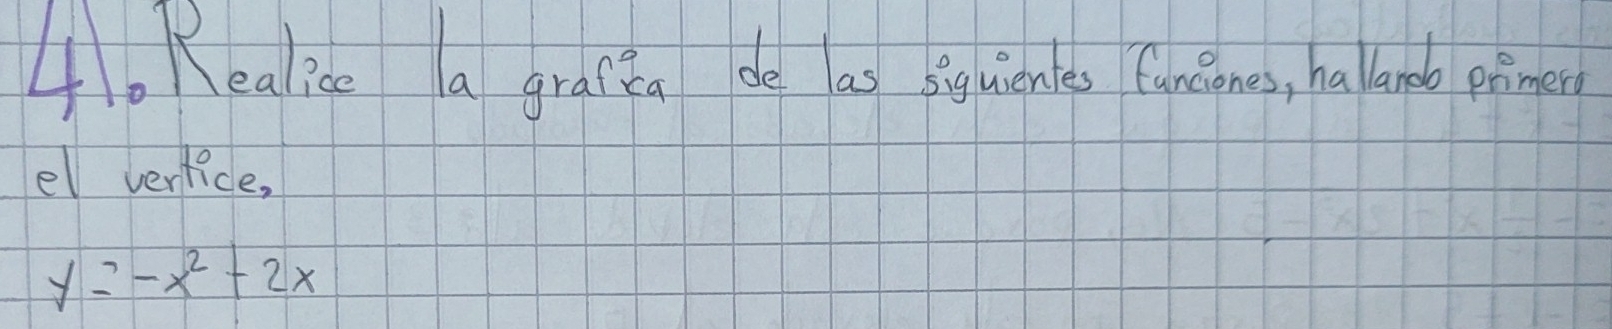 4). Realice la grafica de las siguientes funciones, hallando primero
el vertice,
y = -x² + 2x